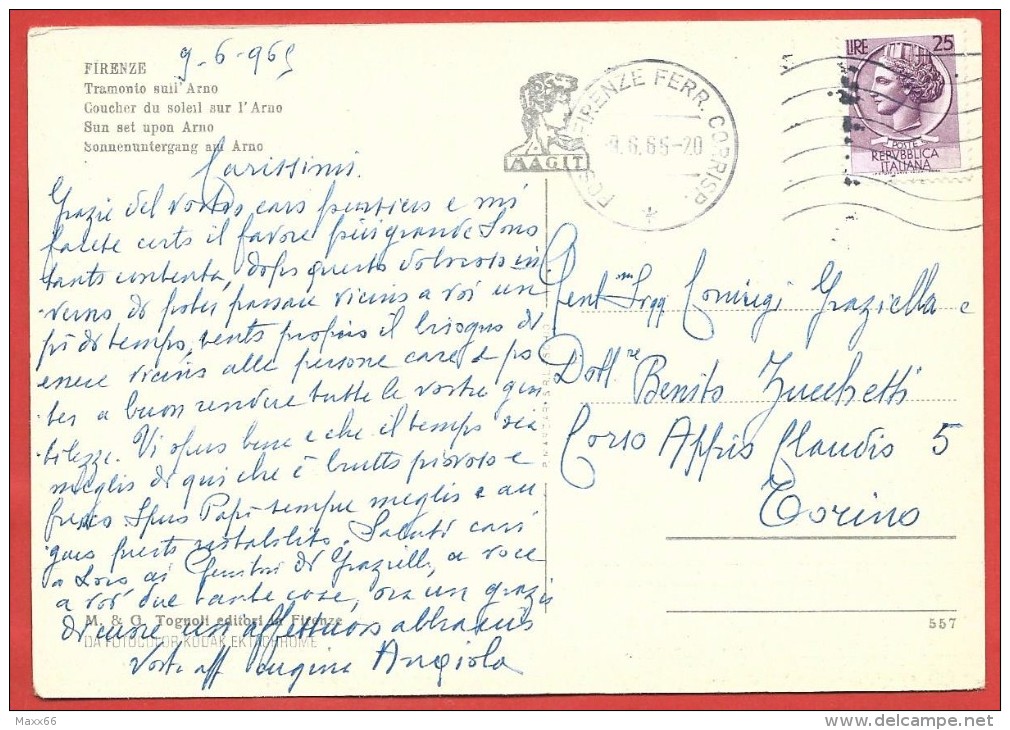 FIRENZE
Tramonto sull'Arno
Coucher du soleil sur l'Arno
Sun set upon Arno
Sonnenuntergang auf Arno
9-6-965
Carissimi.
Grazie del vostro caro pensiero e mi
farete certo il favore più grande. Sono
tanto contenta, dopo questo doloroso in
verno di poter passare vicino a voi un
pò di tempo, sento proprio il bisogno di
essere vicino alle persone care e po
ter a buon rendere tutte le vostre gen
tilezze. Vi spero bene e che il tempo sia
meglio di qui che è brutto piovoso e
fresco. Spero Papà sempre meglio e au
guro presto ristabilito. Saluti cari
a Loro ai Genitori di Graziella, a voce
a voi due tante cose, ora un grazie
di cuore un affettuoso abbraccio
Vostra aff cugina Angiola
M. & G. Tognoli editori in Firenze
DA FOTOCOLOR KODAK EKTACHROME
MAGIT
FIRENZE FERR. CORRISP.
9.6.65-20
LIRE 25
POSTE
REPVBBLICA
ITALIANA
Gent.mi Sigg. Graziella e
Dott.re Benito Zucchetti
Corso Appio Claudio 5
Torino
557
Maxx66
www.delcampe.net